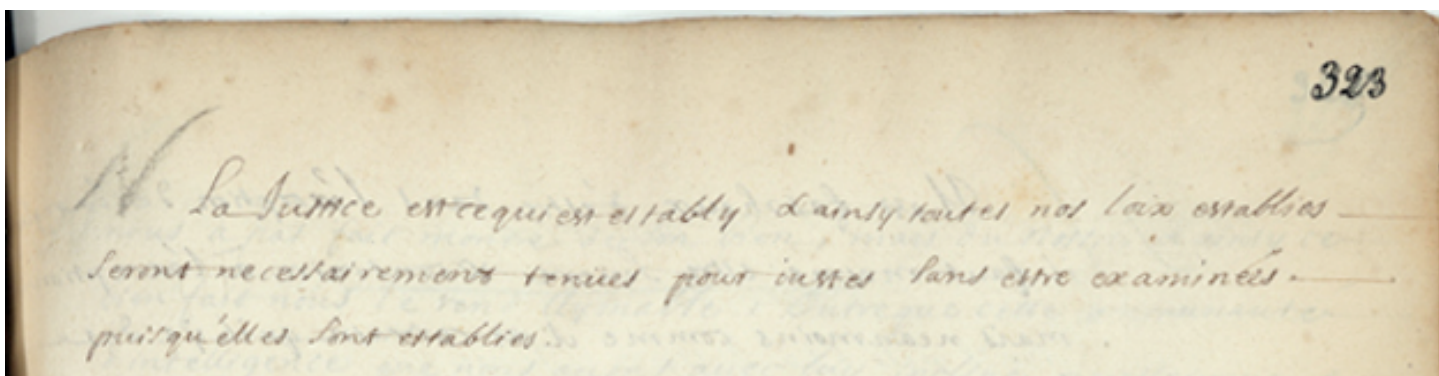 323
N
La Justice est ce qui est estably & ainsy toutes nos loix establies
seront necessairement tenües pour iustes sans estre examinées.
puisqu'elles sont establies.